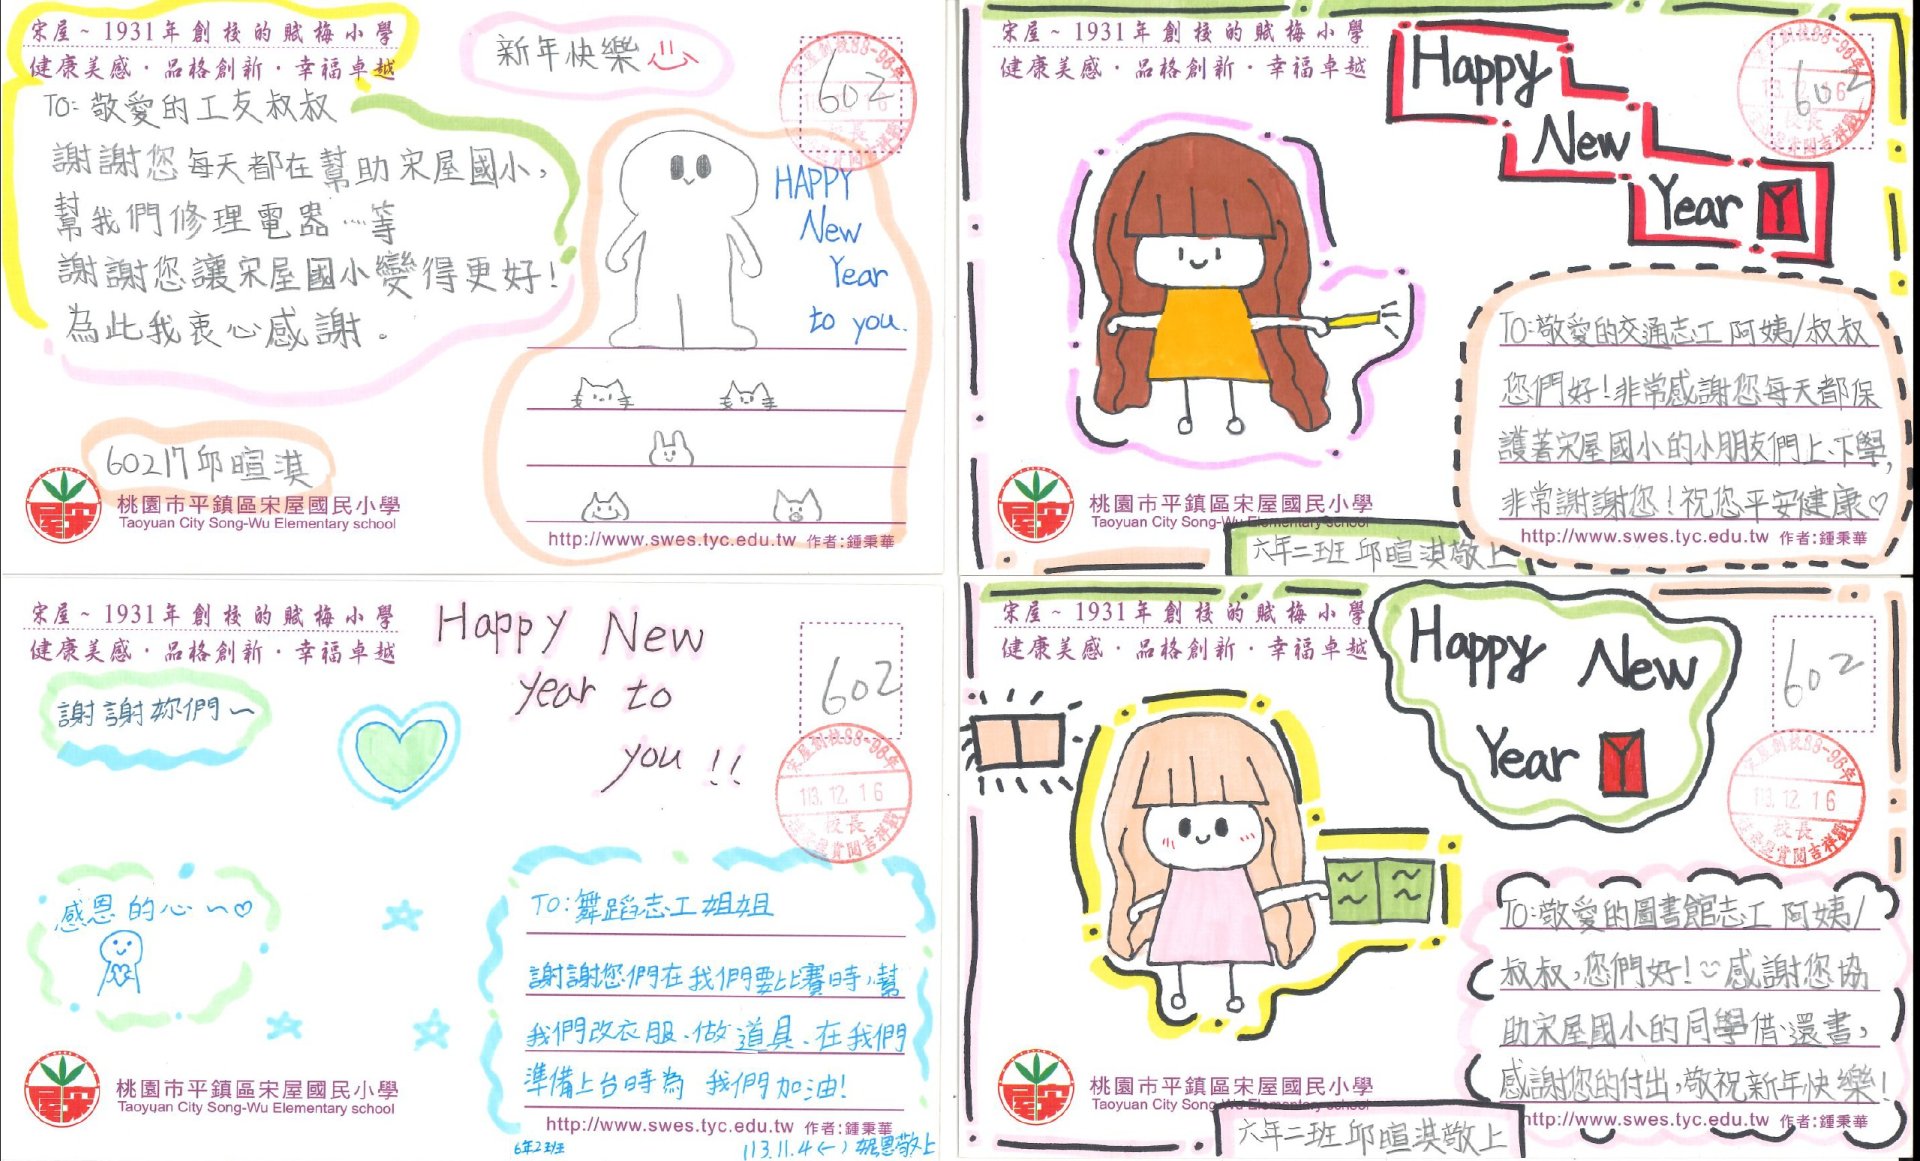 宋屋~1931年創校的賦梅小學
健康美感·品格創新·幸福卓越
新年快樂
602
TO:敬愛的工友叔叔
謝謝您每天都在幫助宋屋國小,
幫我們修理電器…等
謝謝您讓宋屋國小變得更好!
為此我衷心感謝。
HAPPY
New
Year
to you.
60217邱暄淇
桃園市平鎮區宋屋國民小學
Taoyuan City Song-Wu Elementary school
http://www.swes.tyc.edu.tw 作者:鍾秉華
宋屋~1931年創校的賦梅小學
健康美感·品格創新·幸福卓越
Happy
New
Year
602
TO:敬愛的交通志工阿姨/叔叔
您們好!非常感謝您每天都保
護著宋屋國小的小朋友們上、下學,
非常謝謝您!祝您平安健康♡
桃園市平鎮區宋屋國民小學
Taoyuan City Song-Wu Elementary school
http://www.swes.tyc.edu.tw 作者:鍾秉華
六年二班邱暄淇敬上
宋屋~1931年創校的賦梅小學
健康美感·品格創新·幸福卓越
Happy New
year to
you!!
602
宋屋創校88-96年
113.12.16
校長
謝謝妳們~
感恩的心~♡
TO:舞蹈志工姐姐
謝謝您們在我們要比賽時,幫
我們改衣服、做道具、在我們
準備上台時為 我們加油!
桃園市平鎮區宋屋國民小學
Taoyuan City Song-Wu Elementary school
http://www.swes.tyc.edu.tw 作者:鍾秉華
6年2班
113.11.4(一)
敬上
宋屋~1931年創校的賦梅小學
健康美感·品格創新·幸福卓越
Happy New
Year
602
宋屋創校88-96年
113.12.16
校長
TO:敬愛的圖書館志工阿姨/
叔叔,您們好!感謝您協
助宋屋國小的同學借、還書,
感謝您的付出,敬祝新年快樂!
桃園市平鎮區宋屋國民小學
Taoyuan City Song-Wu Elementary school
http://www.swes.tyc.edu.tw 作者:鍾秉華
六年二班邱暄淇敬上